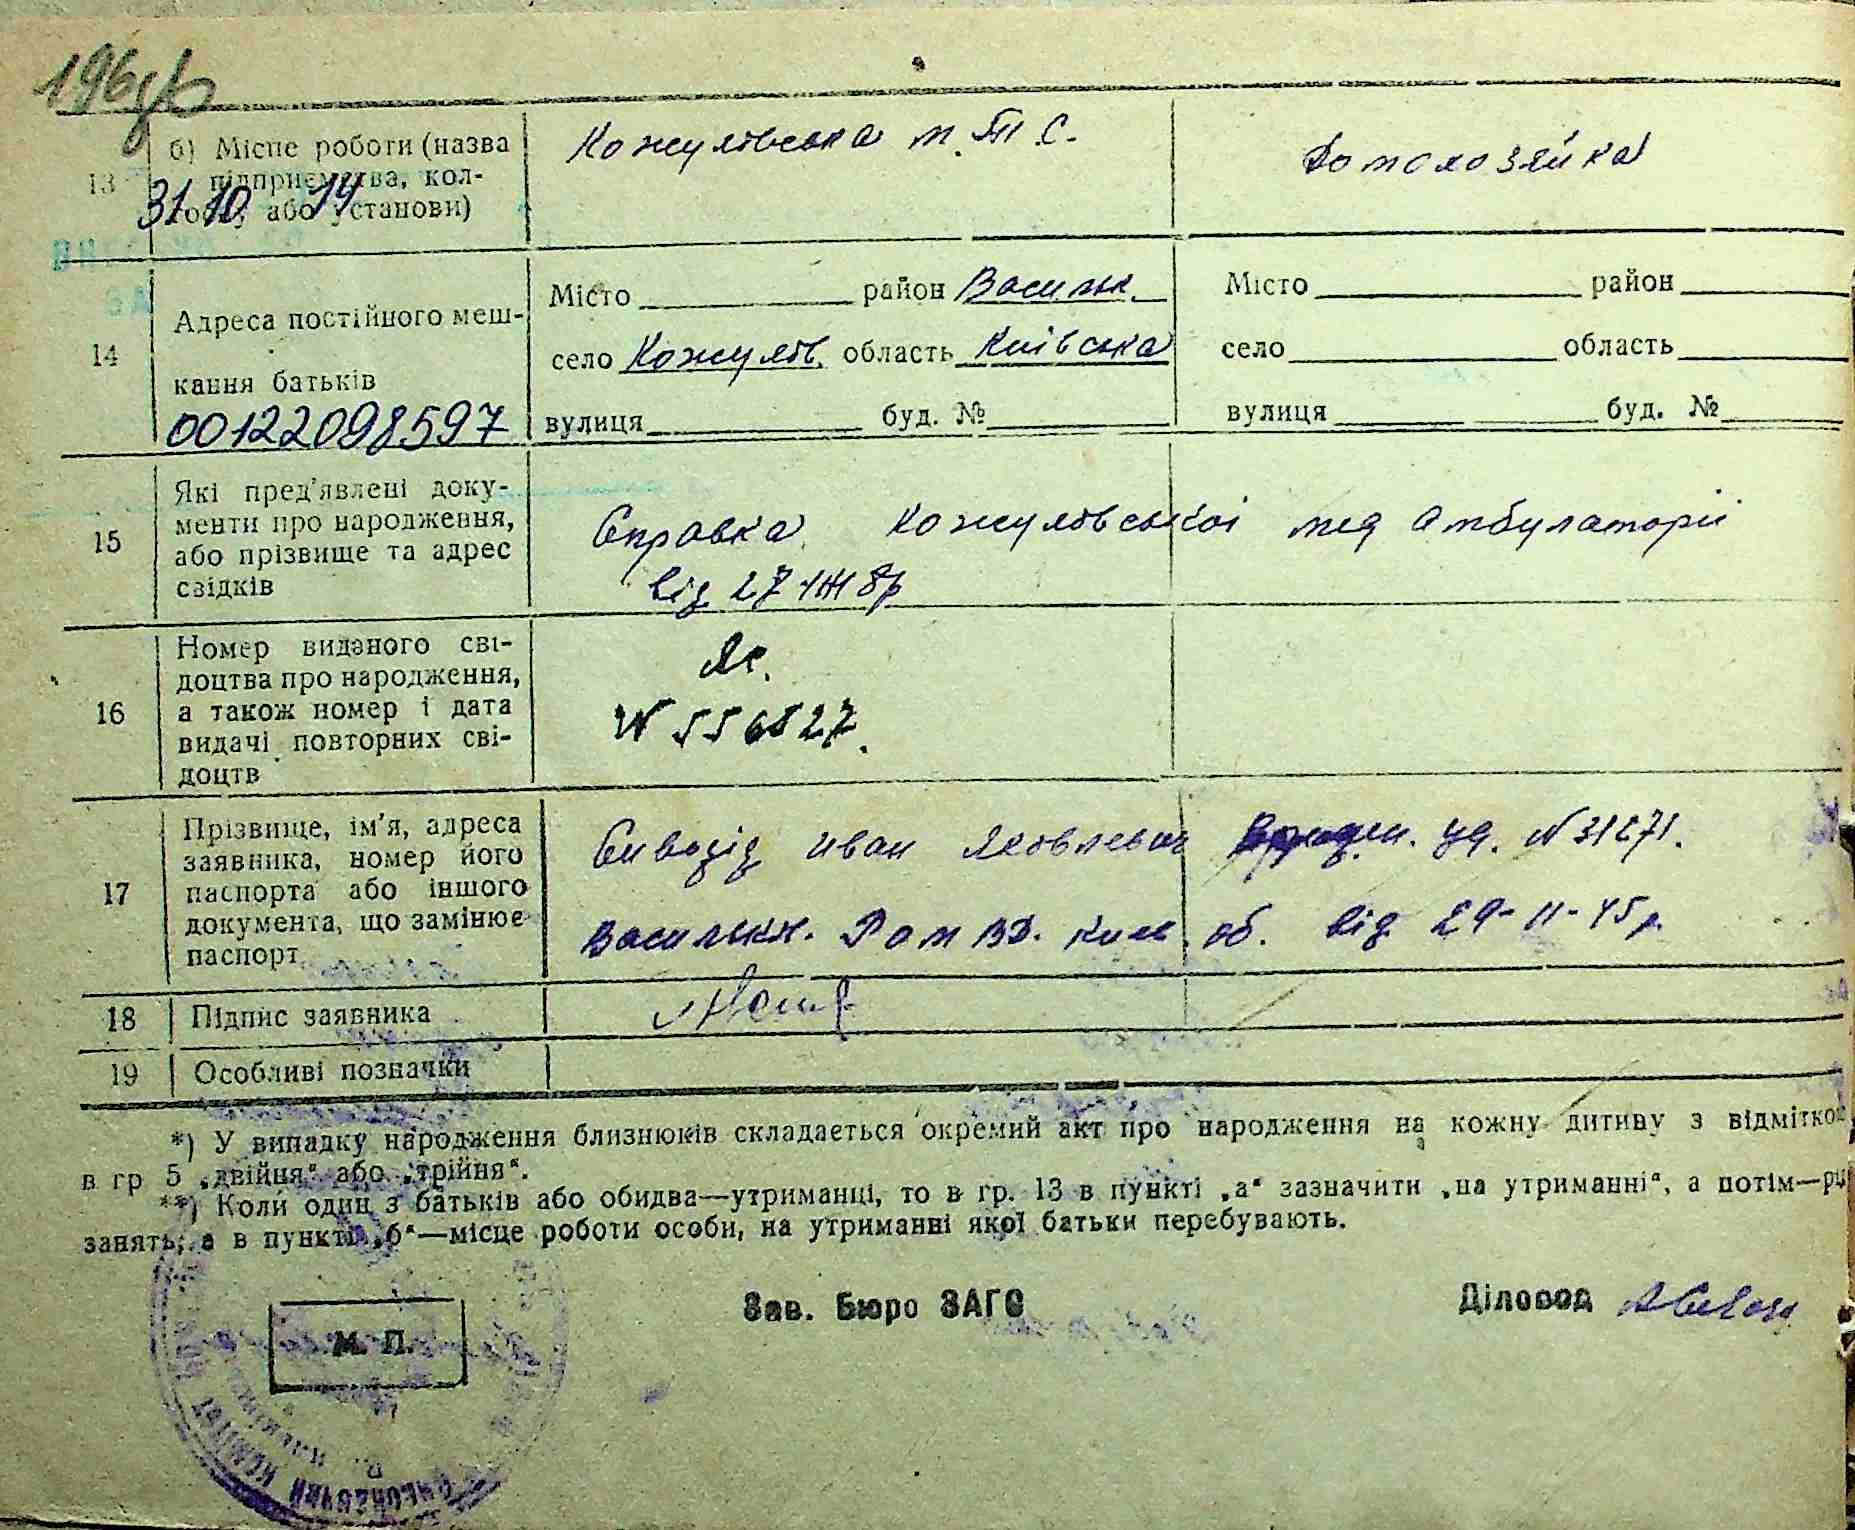 196
б) Місце роботи (назва
13 підприємства, кол-
госпу або установи)
31.10.14
Кожухівська М.Т.С.
домохозяйка
14 Адреса постійного меш-
кання батьків
00122098597
Місто район Васильк.
село Кожухів. область Київська
вулиця буд. №
Місто район
село область
вулиця буд. №
15 Які пред'явлені доку-
менти про народження,
або прізвище та адрес
свідків
Справка Кожухівської мед амбулаторії
від 27
16 Номер виданого сві-
доцтва про народження,
а також номер і дата
видачі повторних сві-
доцтв
N 556827.
17 Прізвище, ім'я, адреса
заявника, номер його
паспорта або іншого
документа, що замінює
паспорт
Сивозід Иван Яковлевич уд. N 31271.
Васильк. Рай МВД. Киев. об. від 29-11-45р.
18 Підпис заявника
19 Особливі позначки
*) У випадку народження близнюків складається окремий акт про народження на кожну дитину з відміткою
в гр 5 „двійня“ або „трійня“.
**) Коли один з батьків або обидва—утриманці, то в гр. 13 в пункті „а“ зазначити „на утриманні“, а потім—рід
занять, а в пункті „б“—місце роботи особи, на утриманні якої батьки перебувають.
Зав. Бюро ЗАГС Діловод
М. П.